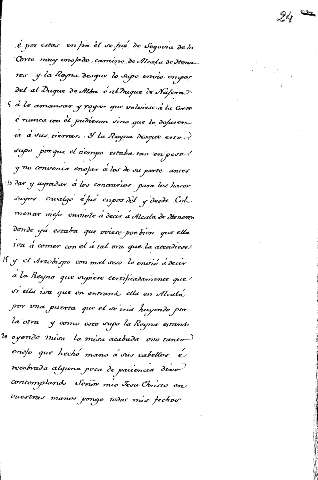 24
é por estas en fin él se fué de Segovia de la
Corte muy enojado, camino de Alcala de Hena-
res y la Reyna desque lo supo envió empos
del al Duque de Alba é al Duque de Nájera
5 á le amansar y rogar que volviese á la Corte
é nunca con él pudieron sino que lo dejasen
ir á sus tierras. Y la Reyna desque esto
supo porque el tiempo estaba tan en peso
y no convenia enojar á los de su parte antes
10 dar y agradar á los contrarios para los hacer
suyos cavalgó é fué empos dél y desde Col-
menar viejo envióle á decir á Alcala de Henares
donde yá estaba que oviese por bien que ella
iva á comer con el á tal ora que la atendiese
15 y el Arzobispo con mal seso le envió á decir
á la Reyna que supiese certificadamente que
si ella iva que en entrando ella en Alcalá
por una puerta que el se iria huyendo por
la otra y como esto supo la Reyna estando
20 oyendo misa la misa acabada ovo tanto
enojo que hechó mano á sus cabellos é
recobrada alguna poca de paciencia dixo
contemplando Señor mio Jesu Christo en
vuestras manos pongo todos mis fechos